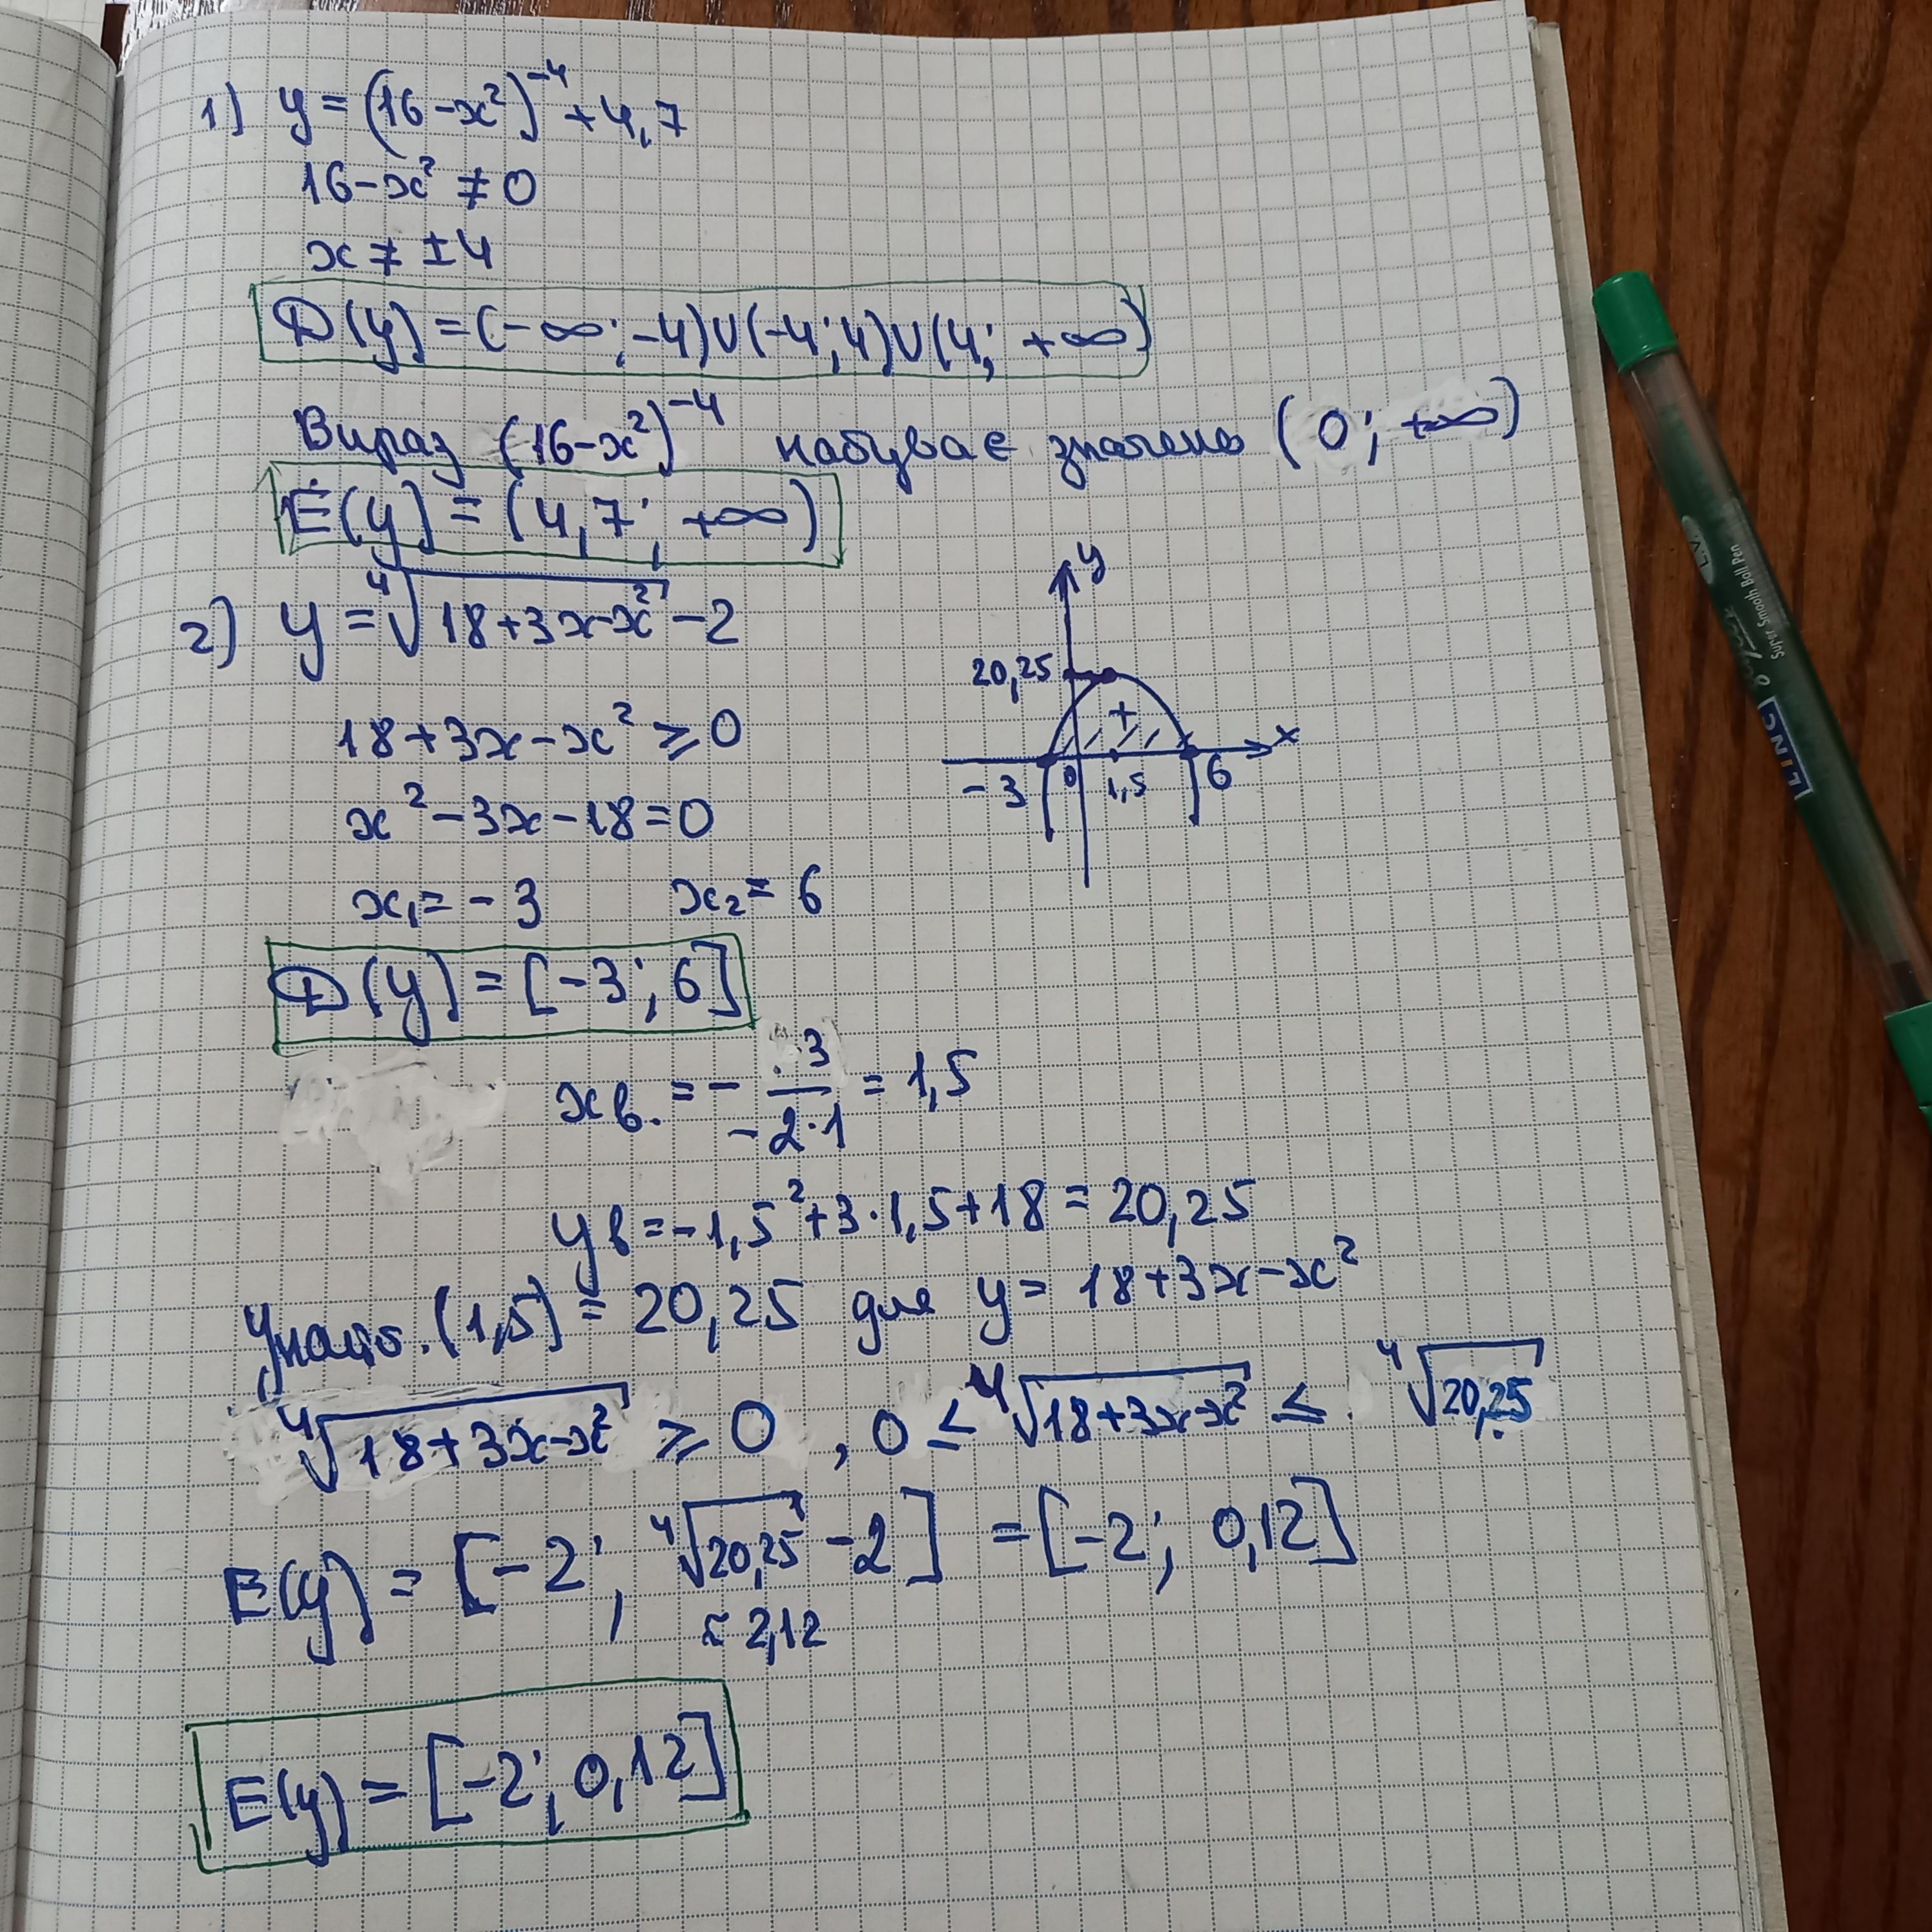 1) y = (16-x²)⁻⁴ + 4,7
16-x² ≠ 0
x ≠ ±4
D(y) = (-∞; -4)∪(-4; 4)∪(4; +∞)
Вираз (16-x²)⁻⁴ набуває значень (0; +∞)
E(y) = (4,7; +∞)
2) y = ⁴√(18+3x-x²) - 2
18+3x-x² ≥ 0
x²-3x-18=0
x₁= -3 x₂= 6
D(y) = [-3; 6]
y
20,25
+
x
-3 0 1,5 6
xв. = - 3/(-2·1) = 1,5
yв = -1,5²+3·1,5+18 = 20,25
yнайб.(1,5) = 20,25 для y = 18+3x-x²
⁴√(18+3x-x²) ≥ 0 , 0 ≤ ⁴√(18+3x-x²) ≤ ⁴√20,25
E(y) = [-2; ⁴√20,25 - 2] = [-2; 0,12]
≈ 2,12
E(y) = [-2; 0,12]
LINC
Super Smooth Ball Pen